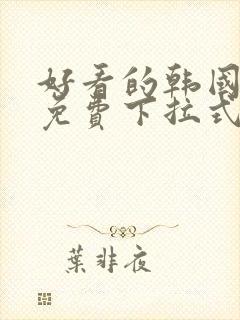 好看的韩国
免費下拉式
葉非夜